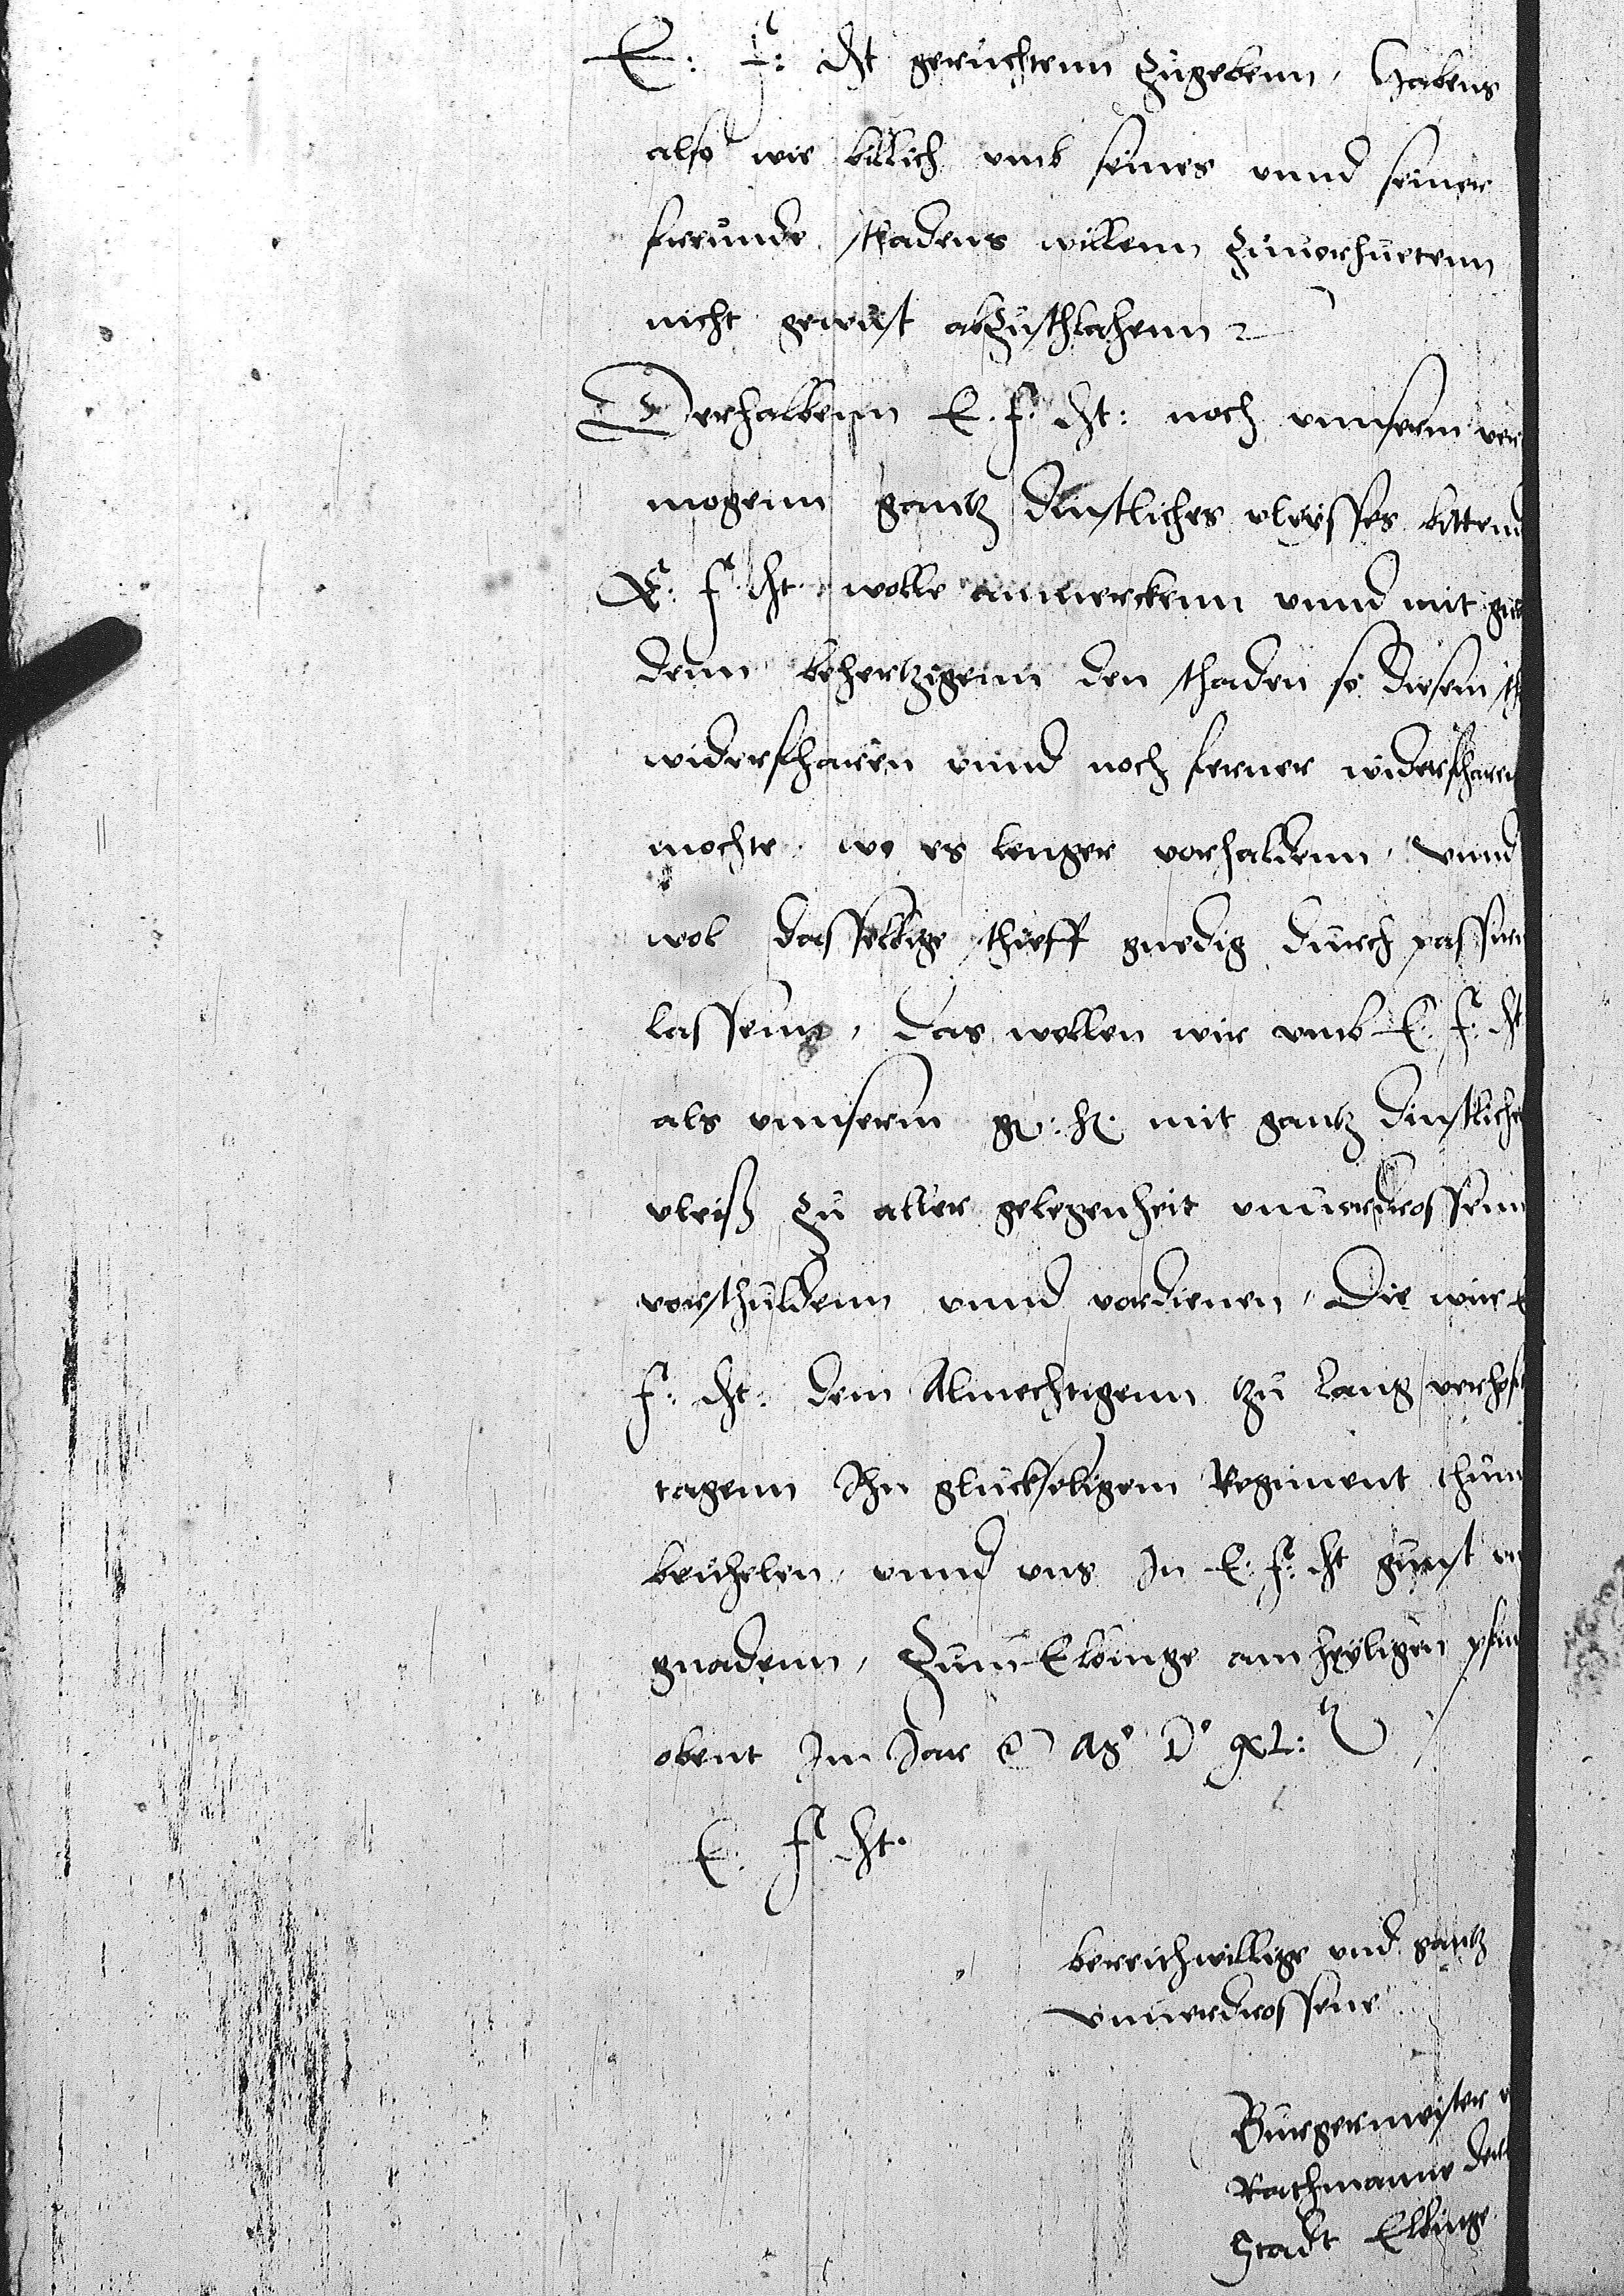 E: f: dt geruchtenn Zugebenn, Habens
also wie billich umb seines unnd seiner
freunde schadens willenn Zuuorhuetenn
nicht gewust abZuschlahenn
Derhalbenn E. f. dt: noch unnserm ver
mogenn gantz dinstliches vleysses bittend
E. f. dt. wolle anmerckenn unnd mit gna
denn behertzigenn den schaden so diesem sch
widerfharen unnd noch ferner widerfharen
mochte, wo es lenger vorhaldenn, unnd
wol dasselbige schieff gnedig durch passiren
lassenn, Das wollen wir umb E. f. dt
als unnserm g. h. mit gantz dinstlichem
vleiß Zu aller gelegenheit unuerdrossenn
vorschuldenn unnd vordienen, Die wir E
f: dt: dem Almechtigenn Zu Lang verhoff
tagenn Ihn gluckseligem Regiment thun
beuhelen, unnd uns In E. f. dt gunst un
gnadenn, Zum Elbinge am heyligen pfin
obent Im Jar XL:
E. f. dt.
bereithwillige und gantz
unuerdrossene
Burgermeyster u
Rathmanne der
Stadt Elbinge